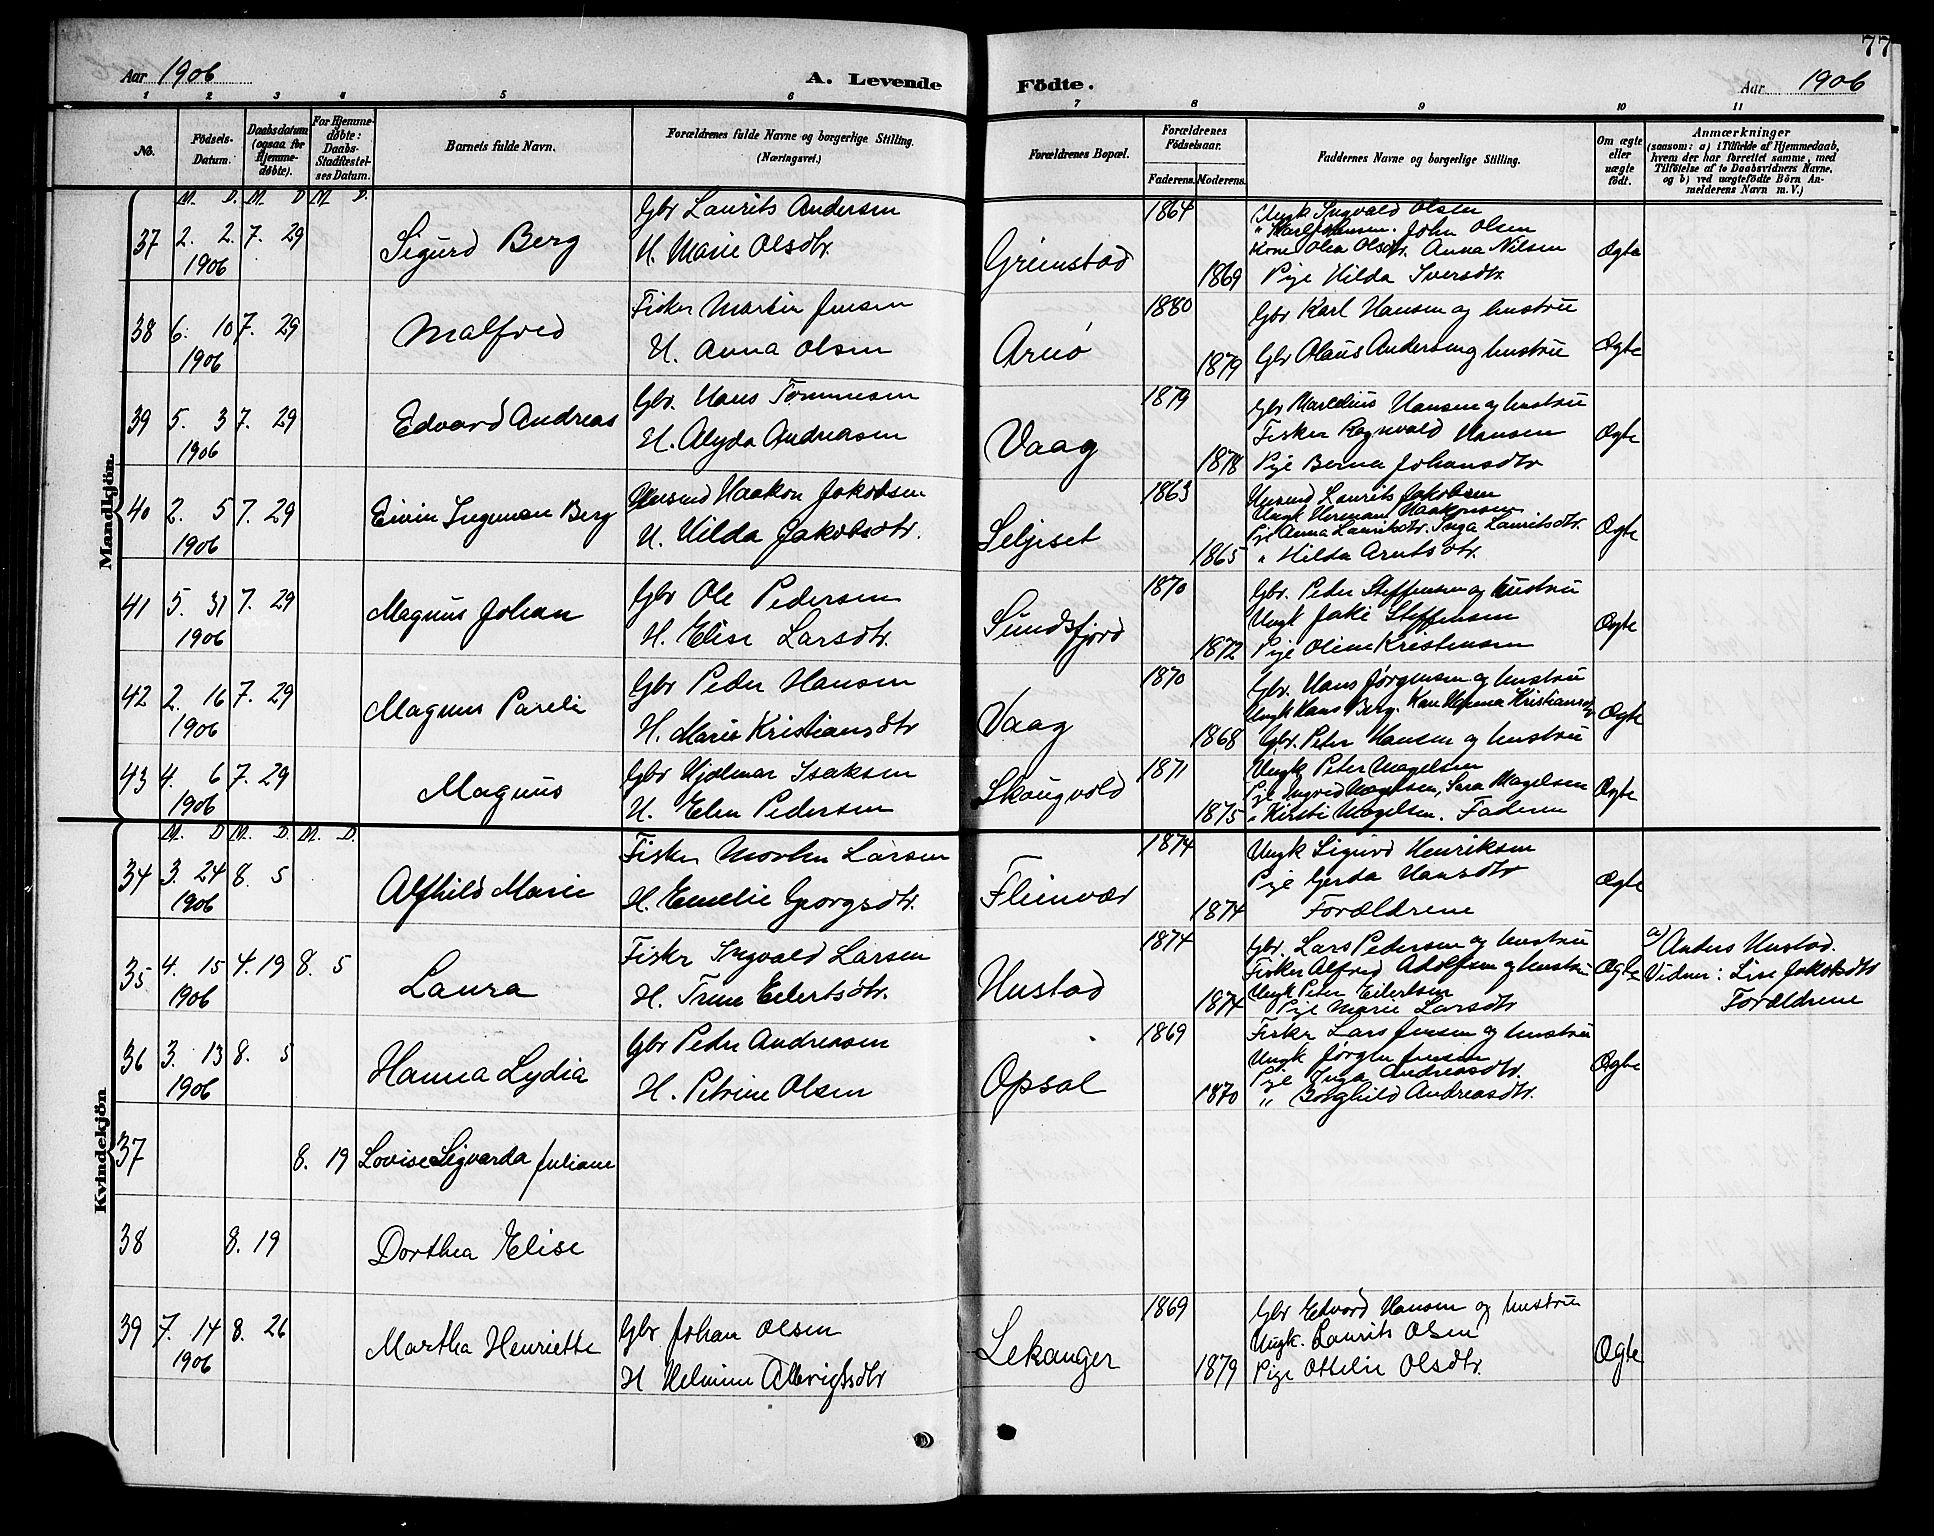 77
Aar 1906
A. Levende
Födte.
Aar 1906
1 2 3 4 5 6 7 8 9 10 11
No.
Födsels-Datum.
Daabsdatum (ogsaa for Hjemmedøbte).
For Hjemmedøbte: Daabs-Stadfæstelses Datum.
Barnets fulde Navn.
Forældrenes fulde Navne og borgerlige Stilling.
(Næringsvei.)
Forældrenes Bopæl.
Forældrenes Födselsaar.
Faderens. Moderens.
Faddernes Navne og borgerlige Stilling.
Om ægte eller uægte födt.
Anmærkninger
(saasom: a) i Tilfælde af Hjemmedaab,
hvem der har forrettet samme, med
Tilføielse af to Daabsvidners Navne,
og b) ved uægtefödte Börn An-
melderens Navn m. V.)
Mandkjön.
M. D. M. D M. D.
37 2. 2. 7. 29
1906
Sigurd Berg
Gbr Laurits Andersen
H. Marie Olsdtr.
Grimstad
1864
1869
Ungk Ingvald Olsen
John Olsen
Kone Olea Olsdtr. Anna Nilsen
Pige Hilda Iversdtr.
Ægte
38 6. 10 7. 29
1906
Malfred
Fisker Martin Jensen
H. Anna Olsen
Arnø
1880
1879
Gbr Karl Hansen og hustru
Gbr Olaus Andersen og hustru
Ægte
39 5. 3 7. 29
1906
Edvard Andreas
Gbr. Hans Tommesen
H. Alyda Andreasen
Vaag
1879
1878
Gbr Marelius Hansen og hustru
Fisker Ragnvald Hansen
Pige Berna Johansdtr
Ægte
40 2. 5 7. 29
1906
Eivin Ingeman Berg
Husmd Haakon Jakobsen
H. Hilda Jakobsdtr.
Seljeset
1863
1865
Husmd Laurits Jakobsen
Ungk Herman Haakonsen
Pige Anna Lauritsdtr. Inga Lauritsdtr.
" Hilda Arntsdtr.
Ægte
41 5. 31 7. 29
1906
Magnus Johan
Gbr Ole Pedersen
H. Elise Larsdtr.
Sundsfjord
1870
1872
Gbr. Peder Steffensen og hustru
Ungk Jakob Steffensen
Pige Oline Kristensen
Ægte
42 2. 16 7. 29
1906
Magnus Pareli
Gbr Peder Hansen
H. Marie Kristiansdtr
Vaag
1870
1868
Gbr. Hans Jørgensen og hustru
Ungk Hans Berg.
Gbr. Peter Hansen og hustru
Ægte
43 4. 6 7. 29
1906
Magnus
Gbr Hjalmar Isaksen
H. Elen Pedersen
Skaugvold
1871
1875
Ungk Peter Magelsen
Pige Ingrid Magelsen, Sara Magelsen
" Kirsti Magelsen. Faderen
Ægte
Kvindekjön
M. D M. D. M. D.
34 3. 24 8. 5
1906
Alfhild Marie
Fisker Morten Larsen
H. Emelie Georgsdtr.
Fleinvær
1874
1874
Ungk Sigurd Henriksen
Pige Gerda Hansdtr
Forældrene
Ægte
35 4. 15 4. 19 8. 5
1906
Laura
Fisker Ingvald Larsen
H. Trine Eilertsdtr.
Hustad
1874
1874
Gbr. Lars Pedersen og hustru
Fisker Alfred Adolfsen og hustru
Ungk Peter Eilertsen
Pige Marie Larsdtr
Ægte
a) Anders Hustad.
Vidner: Lise Jakobsdtr
Forældrene
36 3. 13 8. 5
1906
Hanna Lydia
Gbr Peder Andreasen
H. Petrine Olsen
Opsal
1869
1870
Fisker Lars Jensen og hustru
Ungk Jørgen Jensen
Pige Inga Andreasdtr.
" Borghild Andreasdtr.
Ægte
37 8. 19
Lovise Sigvarda Juliane
38 8. 19
Dorthea Elise
39 7. 14 8. 26
1906
Martha Henriette
Gbr Johan Olsen
H Helmine Albrigtsdtr
Lekanger
1869
1879
Gbr Edvard Hansen og hustru
Ungk. Laurits Olsen
Pige Ottelie Olsdtr.
Ægte